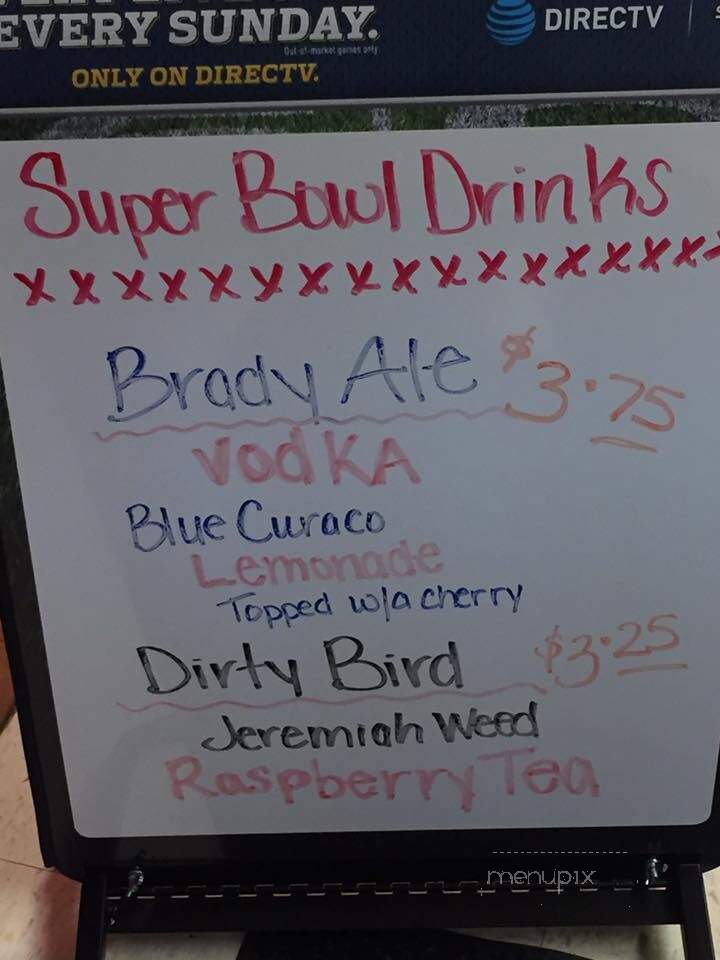 EVERY SUNDAY.
Out-of-market games only
ONLY ON DIRECTV.
DIRECTV
Super Bowl Drinks
xxxxxxxxxxxxxxxxx
Brady Ale $3.75
Vodka
Blue Curaco
Lemonade
Topped w/a cherry
Dirty Bird $3.25
Jeremiah Weed
Raspberry Tea
menupix